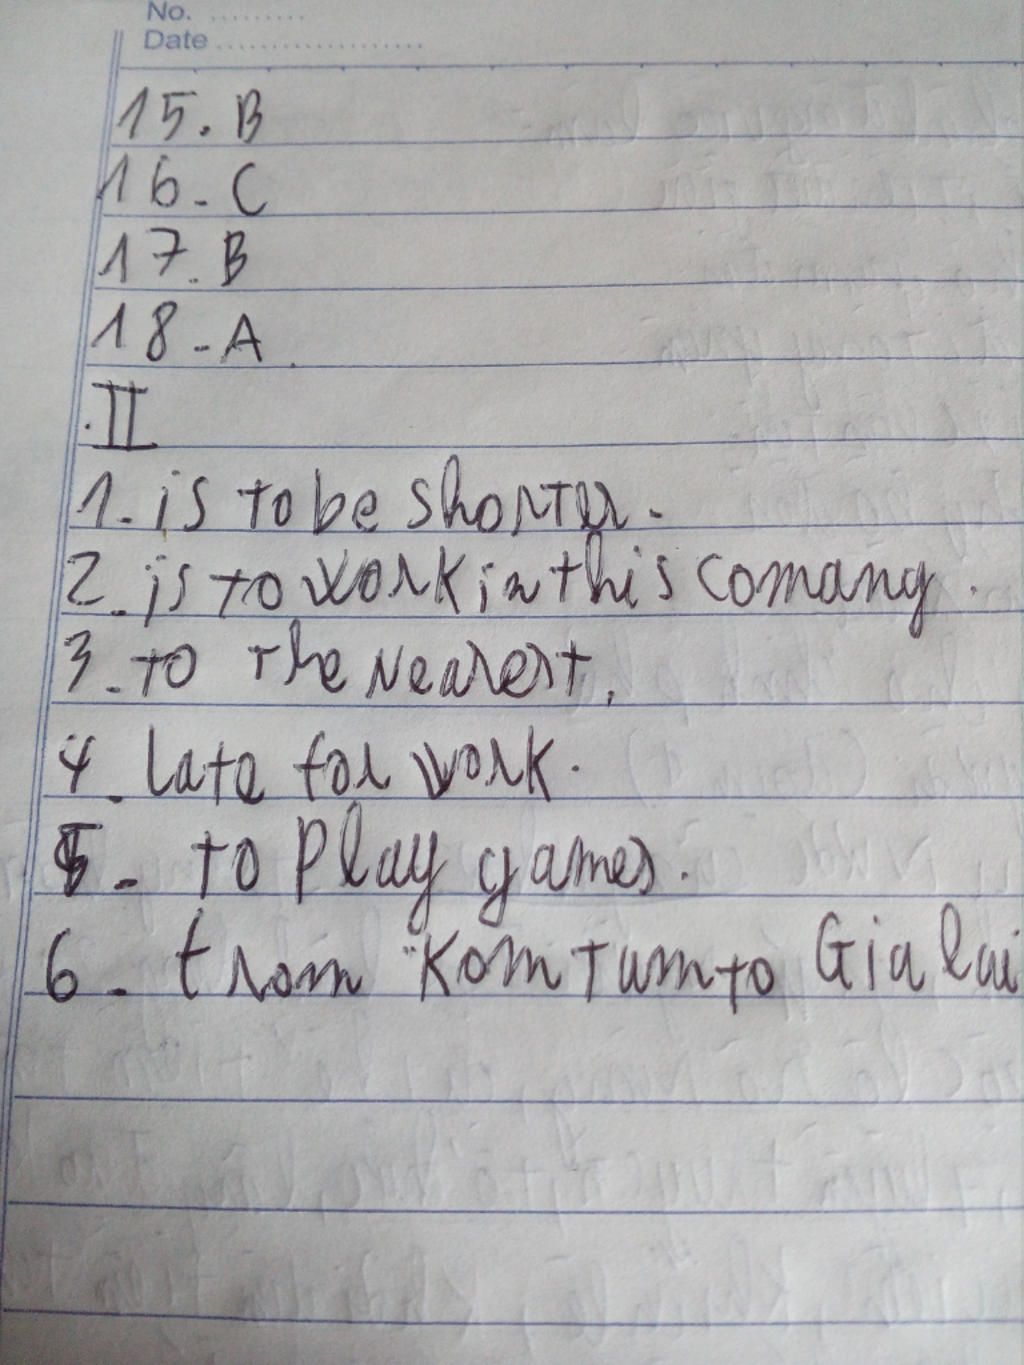 No. ..........
Date ......................
15. B
16 - C
17. B
18 - A.
II
1 - is to be shorter.
2 - is to work in this comany.
3 - to the Nearest.
4 - late for work.
5 - to play games.
6 - from Kom Tum to Gia lai